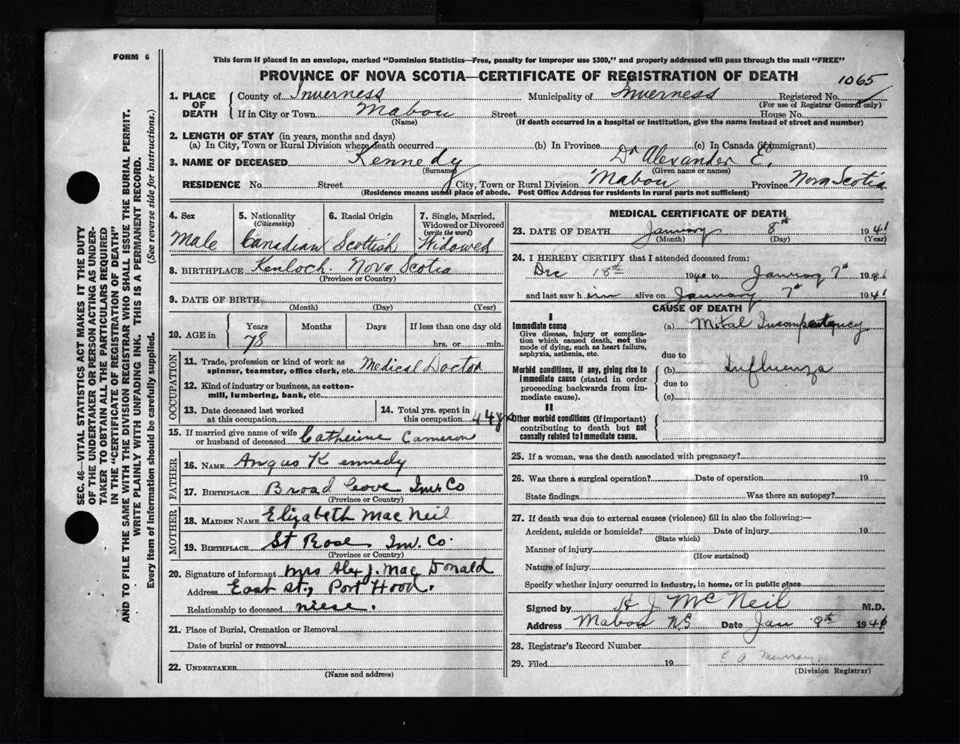 FORM 6
This form if placed in an envelope, marked "Dominion Statistics—Free, penalty for improper use $300," and properly addressed will pass through the mail "FREE"
PROVINCE OF NOVA SCOTIA—CERTIFICATE OF REGISTRATION OF DEATH
1065
1. PLACE OF DEATH
County of Inverness Municipality of Inverness Registered No.
(For use of Registrar General only)
If in City or Town Mabou Street House No.
(Name) (If death occurred in a hospital or institution, give the name instead of street and number)
2. LENGTH OF STAY (in years, months and days)
(a) In City, Town or Rural Division where death occurred (b) In Province (c) In Canada (if immigrant)
3. NAME OF DECEASED Kennedy Dr Alexander E.
(Surname) (Given name or names)
RESIDENCE No. Street City, Town or Rural Division Mabou Province Nova Scotia
(Residence means usual place of abode. Post Office Address for residents in rural parts not sufficient)
4. Sex
Male
5. Nationality
(Citizenship)
Canadian
6. Racial Origin
Scottish
7. Single, Married, Widowed or Divorced
(write the word)
Widowed
8. BIRTHPLACE Kenloch Nova Scotia
(Province or Country)
9. DATE OF BIRTH
(Month) (Day) (Year)
10. AGE in Years Months Days If less than one day old
78 hrs. or min.
OCCUPATION
11. Trade, profession or kind of work as spinner, teamster, office clerk, etc. Medical Doctor
12. Kind of industry or business, as cotton-mill, lumbering, bank, etc.
13. Date deceased last worked at this occupation
14. Total yrs. spent in this occupation
15. If married give name of wife or husband of deceased Catherine Cameron
FATHER
16. NAME Angus Kennedy
17. BIRTHPLACE Broad Cove Inv. Co
(Province or Country)
MOTHER
18. MAIDEN NAME Elizabeth MacNeil
19. BIRTHPLACE St Rose Inv. Co.
(Province or Country)
20. Signature of informant Mrs Alex J. Mac Donald
Address East St., Port Hood.
Relationship to deceased niese.
21. Place of Burial, Cremation or Removal
Date of burial or removal
22. UNDERTAKER
(Name and address)
MEDICAL CERTIFICATE OF DEATH
23. DATE OF DEATH January 8th 1941
(Month) (Day) (Year)
24. I HEREBY CERTIFY that I attended deceased from:
Dec 18th 1940 to January 7th 1941
and last saw him alive on January 7th 1941
CAUSE OF DEATH
I
Immediate cause
Give disease, injury or complication which caused death, not the mode of dying, such as heart failure, asphyxia, asthenia, etc.
(a) Mitral Incompetency
due to
Morbid conditions, if any, giving rise to immediate cause (stated in order proceeding backwards from immediate cause).
(b) Influenza
due to
(c)
II
Other morbid conditions (if important) contributing to death but not causally related to immediate cause.
25. If a woman, was the death associated with pregnancy?
26. Was there a surgical operation? Date of operation 19
State findings Was there an autopsy?
27. If death was due to external causes (violence) fill in also the following:—
Accident, suicide or homicide? Date of injury 19
(State which)
Manner of injury
(How sustained)
Nature of injury
Specify whether injury occurred in industry, in home, or in public place
Signed by A J McNeil M.D.
Address Mabou NS Date Jan 9th 1941
28. Registrar's Record Number
29. Filed 19
(Division Registrar)
SEC. 46—VITAL STATISTICS ACT MAKES IT THE DUTY
OF THE UNDERTAKER OR PERSON ACTING AS UNDER-
TAKER TO OBTAIN ALL THE PARTICULARS REQUIRED
IN THE "CERTIFICATE OF REGISTRATION OF DEATH"
AND TO FILE THE SAME WITH THE DIVISION REGISTRAR WHO SHALL ISSUE THE BURIAL PERMIT.
WRITE PLAINLY WITH UNFADING INK. THIS IS A PERMANENT RECORD.
Every item of information should be carefully supplied. (See reverse side for instructions.)